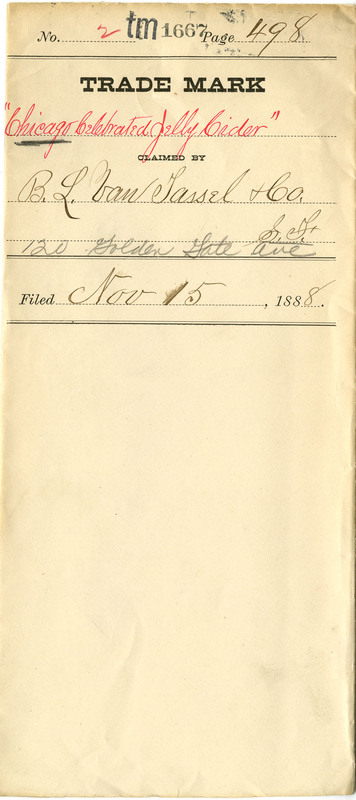 No. 2 tm 1667 Page 498
TRADE MARK
"Chicago Celebrated Jelly Cider"
CLAIMED BY
B. L. Van Tassel & Co.
S. F.
120 Golden Gate Ave
Filed Nov 15, 1888.